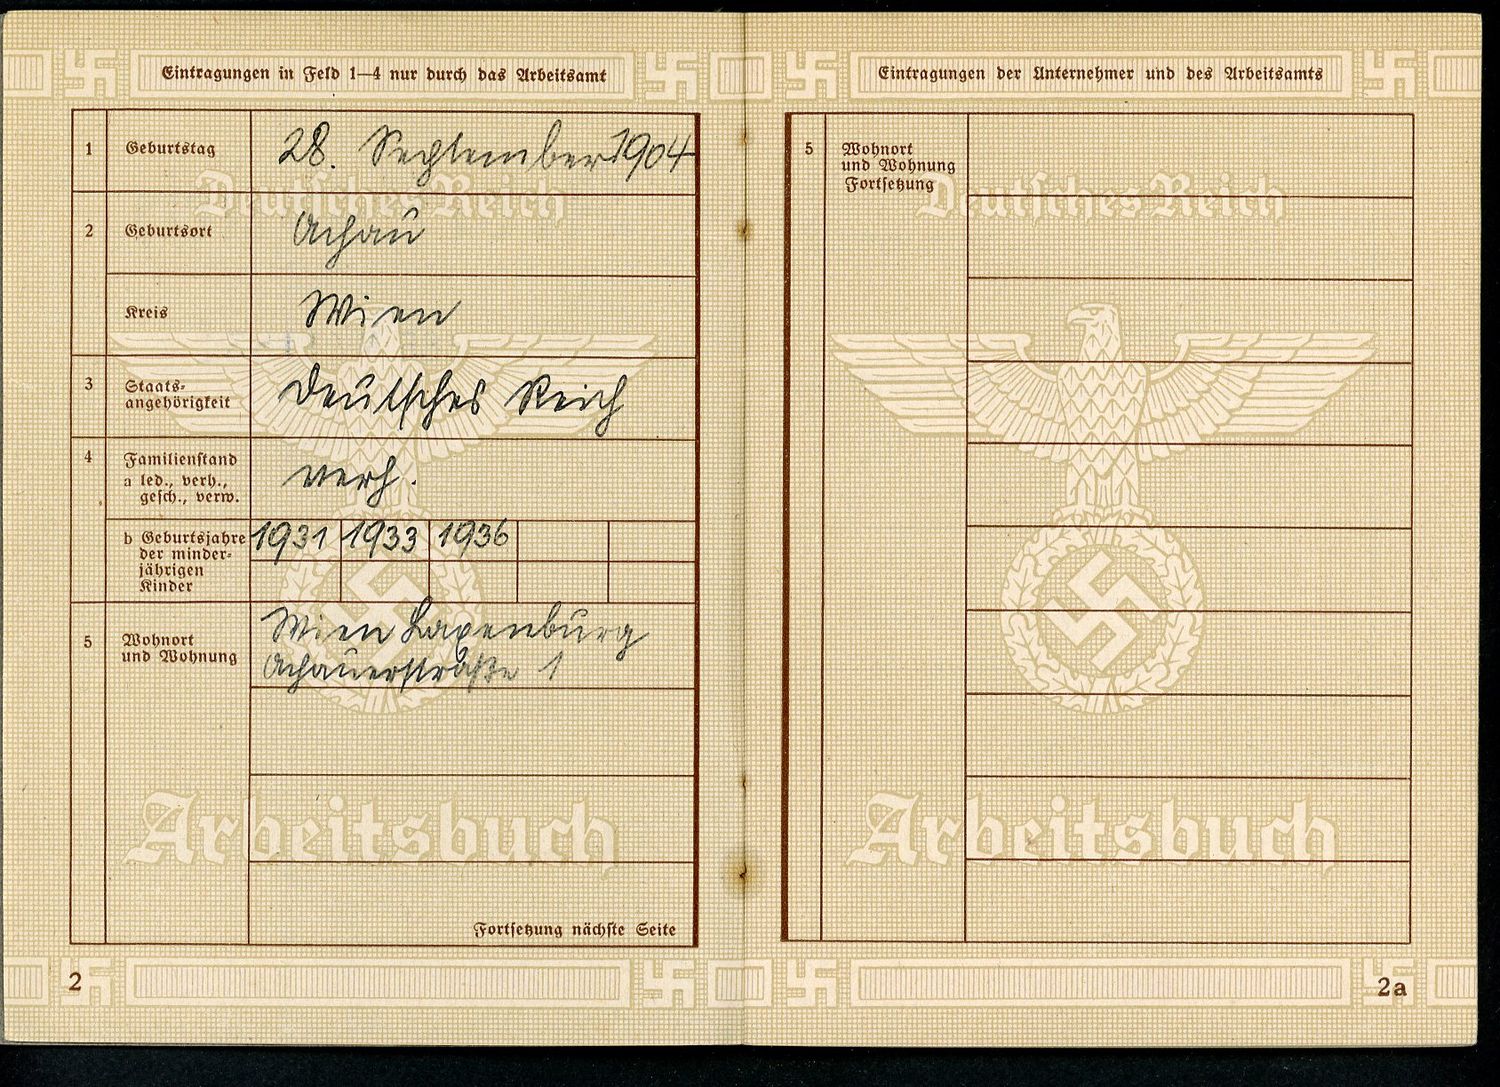 Eintragungen in Feld 1—4 nur durch das Arbeitsamt
1 Geburtstag 28. September 1904
Deutsches Reich
2 Geburtsort Achau
Kreis Wien
3 Staats-
angehörigkeit Deutsches Reich
4 Familienstand
a led., verh.,
gesch., verw. verh.
b Geburtsjahre 1931 1933 1936
der minder-
jährigen
Kinder
5 Wohnort
und Wohnung
Wien Laxenburg
Achauerstraße 1
Arbeitsbuch
Fortsetzung nächste Seite
2
Eintragungen der Unternehmer und des Arbeitsamts
5 Wohnort
und Wohnung
Fortsetzung
Deutsches Reich
Arbeitsbuch
2a